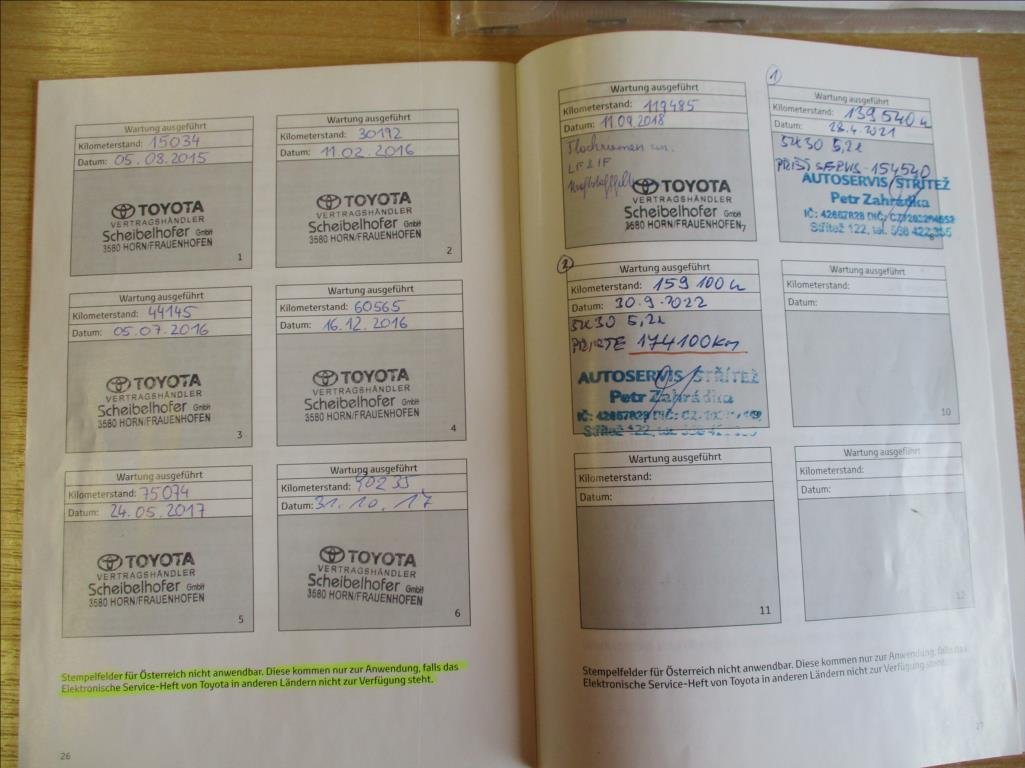 Wartung ausgeführt
Kilometerstand: 15034
Datum: 05.08.2015
TOYOTA
VERTRAGSHÄNDLER
Scheibelhofer GmbH
3580 HORN/FRAUENHOFEN
1
Wartung ausgeführt
Kilometerstand: 30192
Datum: 11.02.2016
TOYOTA
VERTRAGSHÄNDLER
Scheibelhofer GmbH
3580 HORN/FRAUENHOFEN
2
Wartung ausgeführt
Kilometerstand: 44145
Datum: 05.07.2016
TOYOTA
VERTRAGSHÄNDLER
Scheibelhofer GmbH
3580 HORN/FRAUENHOFEN
3
Wartung ausgeführt
Kilometerstand: 60565
Datum: 16.12.2016
TOYOTA
VERTRAGSHÄNDLER
Scheibelhofer GmbH
3580 HORN/FRAUENHOFEN
4
Wartung ausgeführt
Kilometerstand: 75074
Datum: 24.05.2017
TOYOTA
VERTRAGSHÄNDLER
Scheibelhofer GmbH
3580 HORN/FRAUENHOFEN
5
Wartung ausgeführt
Kilometerstand: 90235
Datum: 31.10.17
TOYOTA
VERTRAGSHÄNDLER
Scheibelhofer GmbH
3580 HORN/FRAUENHOFEN
6
Stempelfelder für Österreich nicht anwendbar. Diese kommen nur zur Anwendung, falls das
Elektronische Service-Heft von Toyota in anderen Ländern nicht zur Verfügung steht.
26
Wartung ausgeführt
Kilometerstand: 119485
Datum: 11.09.2018
LF & IF
TOYOTA
VERTRAGSHÄNDLER
Scheibelhofer GmbH
3580 HORN/FRAUENHOFEN
7
1
Wartung ausgeführt
Kilometerstand: 139540
Datum: 28.4.2021
5W30 5,2l
PŘÍŠTÍ SERVIS 154540
AUTOSERVIS STŘÍTEŽ
Petr Zahrádka
IČ: 42667829 DIČ:
Střítež 122, tel. 568 422
8
2
Wartung ausgeführt
Kilometerstand: 159 100
Datum: 30.9.2022
5W30 5,2l
PŘÍŠTĚ 174100km
AUTOSERVIS STŘÍTEŽ
Petr Zahrádka
IČ: 42667829 DIČ: CZ
Střítež 122,
Wartung ausgeführt
Kilometerstand:
Datum:
10
Wartung ausgeführt
Kilometerstand:
Datum:
11
Wartung ausgeführt
Kilometerstand:
Datum:
12
Stempelfelder für Österreich nicht anwendbar. Diese kommen nur zur Anwendung, falls das
Elektronische Service-Heft von Toyota in anderen Ländern nicht zur Verfügung steht.
27